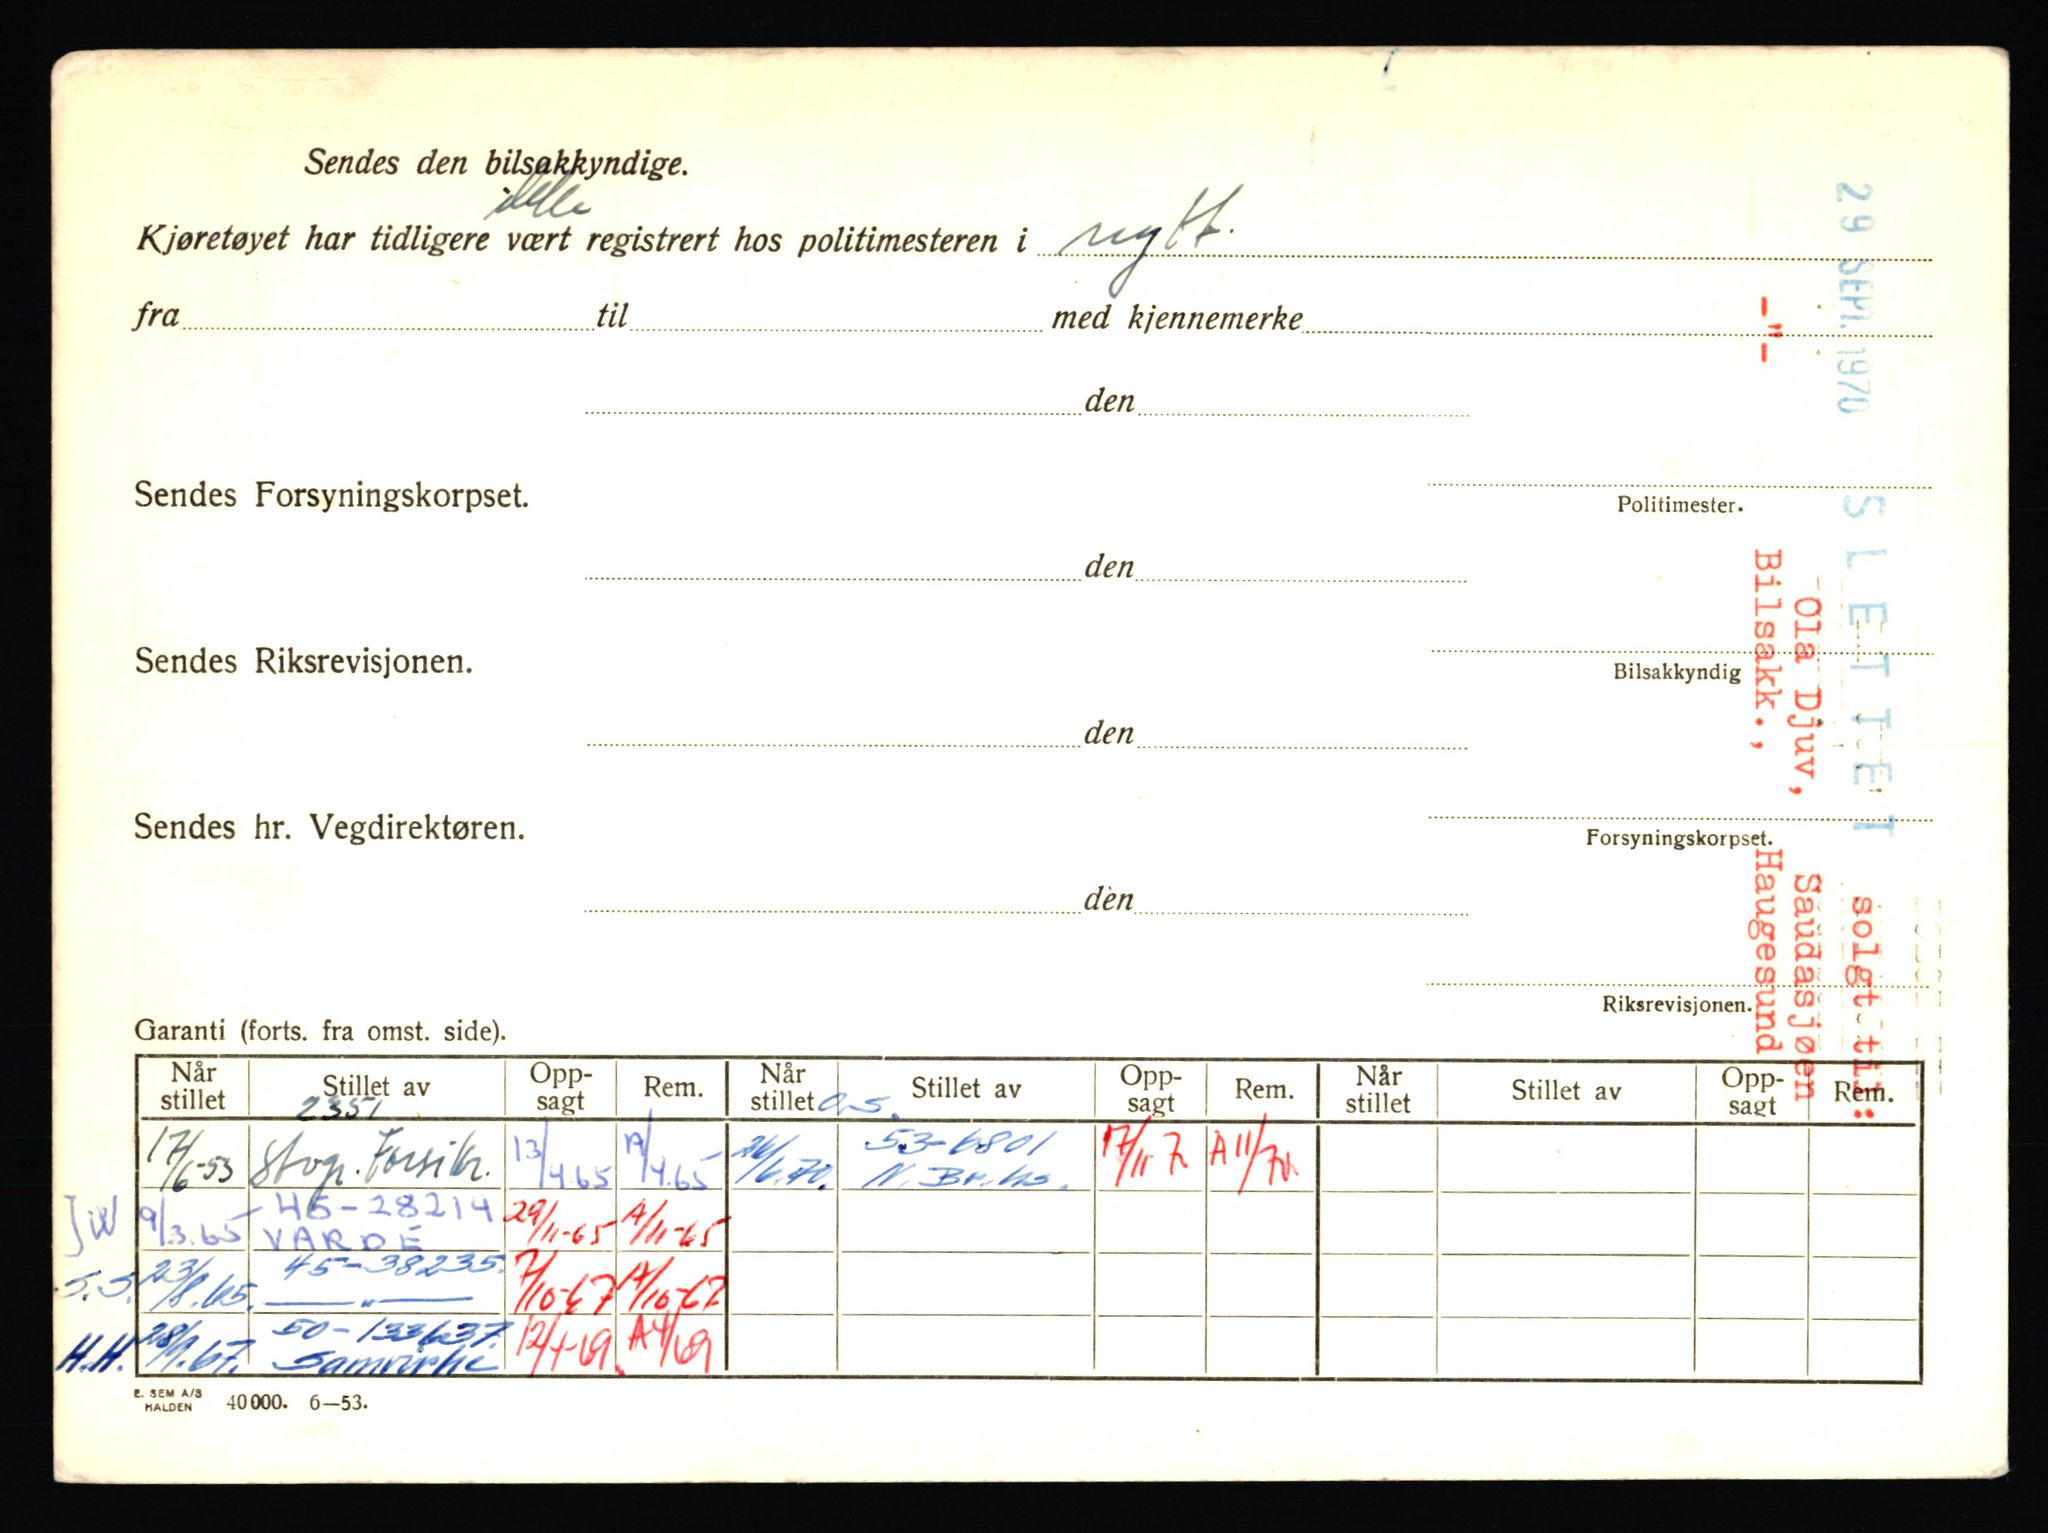 Sendes den bilsakkyndige.
ikke
Kjøretøyet har tidligere vært registrert hos politimesteren i nytt.
fra til med kjennemerke
den
Sendes Forsyningskorpset.
Politimester.
den
Sendes Riksrevisjonen.
Bilsakkyndig
den
Sendes hr. Vegdirektøren.
Forsyningskorpset.
den
Riksrevisjonen.
29 SEPT. 1970 SLETTET solgt til:
Ola Djuv, Saudasjøen
-"- Bilsakk., Haugesund
Garanti (forts. fra omst. side).
Når stillet Stillet av Opp-sagt Rem. Når stillet Stillet av Opp-sagt Rem. Når stillet Stillet av Opp-sagt Rem.
2351
17/6-53 Stvgr. Forsikr. 13/4.65 A/4.65 26/6.70. 53-6801 N. Br.ks. 17/11 7 A 11/70.
JW 9/3.65 45-28214 VARDE 29/11-65 A/11-65
S.S. 23/8.65. 45-38235. —"— 7/10-67 A/10-67
H.H. 28/9.67. 50-133637. Samvirke 12/4-69. A4/69
E. SEM A/S HALDEN 40000. 6—53.